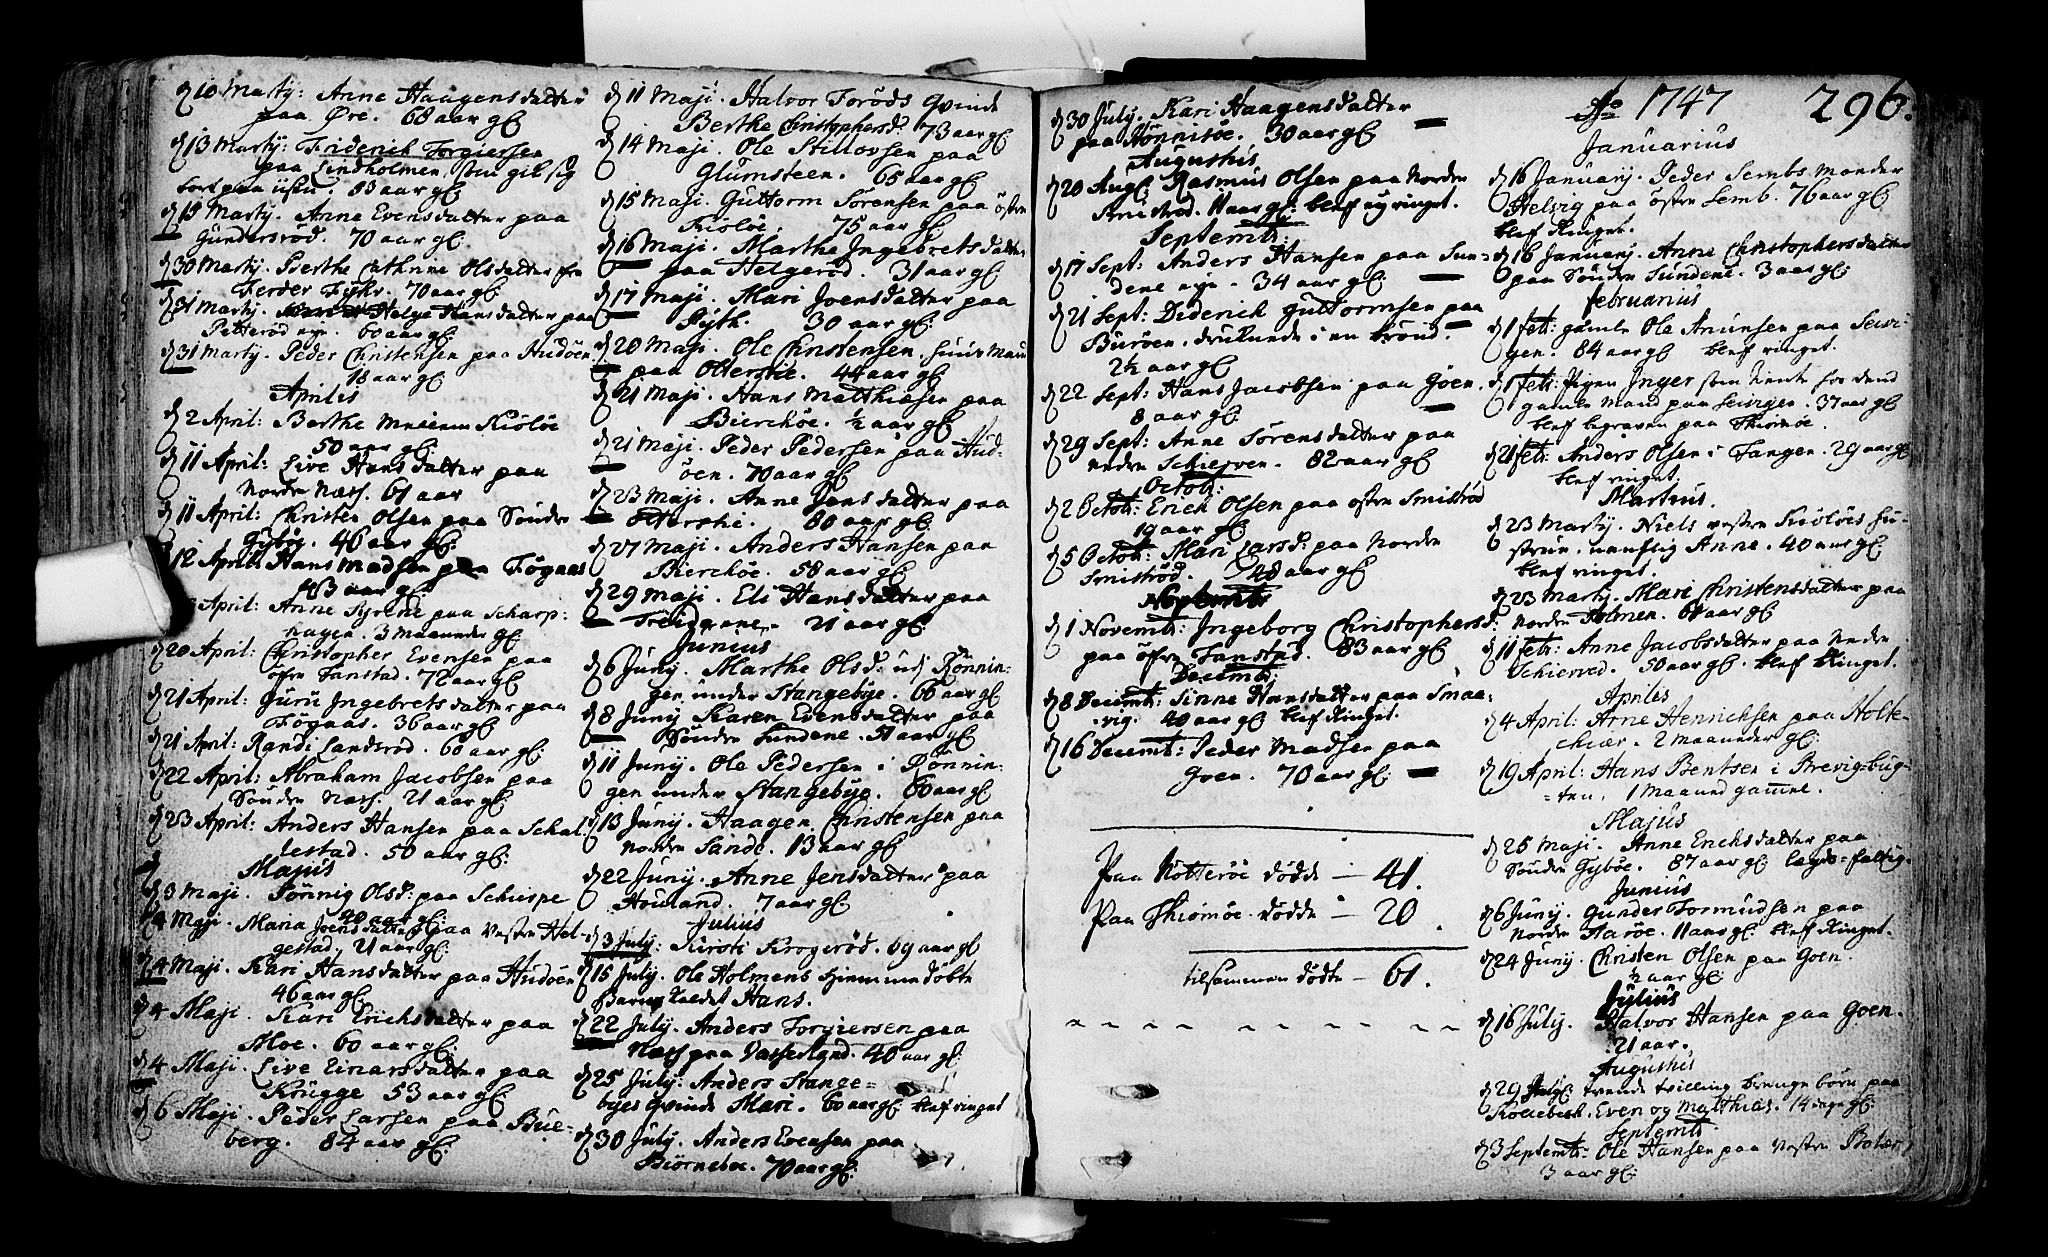 d 10 Martij: Anne Haagensdatter
paa Øre. 68 aar gl
d 13 Martij: Friderich Torgiersen
paa Lindholmen, som gik sig
bort paa iisen. 83 aar gl
d 19 Martij. Anne Evensdatter paa
Gundersrød. 70 aar gl:
d 30 Martij. Berthe Cathrine Olsdatter fra
70 aar gl
d 31 Martij. Helge Hansdatter paa
Petterød eye. 60 aar gl:
d 31 Martij. Peder Christensen paa Hudøen.
18 aar gl
Aprilis
d 2 April: Berthe Kiøløe
50 aar gl:
d 11 April: Live Hansdatter paa
Nordre Næss. 61 aar
d 11 April: Christen Olsen paa Søndre
Gybøe. 46 aar gl:
12 April: Hans Madsen paa Føgaas
43 aar gl:
April: Anne Kyrene paa Scharp:
hagen. 3 maaneder gl
d 20 April: Christopher Evensen paa
øfre Tanstad. 72 aar gl
d 21 April: Guru Ingebretsdatter paa
Føgaas. 36 aar gl
d 21 April: Randi Landsrød. 60 aar gl:
d 22 April: Abraham Jacobsen paa
Søndre Næss. 21 aar gl:
d 23 April: Anders Hansen paa Schal
lestad. 50 aar gl:
Majus
d 3 Maji. Tønnig Olsd: paa Schierpe
90 aar gl:
d 4 Maji. Maria Joensdatter paa Vestre Hel-
gestad. 21 aar gl:
d 4 Maji. Kari Hansdatter paa Hudøen
46 aar gl.
d 4 Maji. Kari Erichsdatter paa
Moe. 60 aar gl:
d 4 Maji. Live Einarsdatter paa
Krugge 53 aar gl:
d 6 Maji. Peder Larsen paa Bue-
berg. 84 aar gl:
d 11 Maji. Halvor Torøds Qvinde
Berthe Christophersd: 73 aar gl:
d 14 Maji. Ole Stillovsen paa
Glumsteen. 65 aar gl
d 15 Maji. Guttorm Sørensen paa østre
Kiøløe. 75 aar gl
d 16 Maji. Marthe Ingebretsdatter
paa Helgerød. 31 aar gl
d 17 Maji. Mari Joensdatter paa
Pyth. 30 aar gl:
d 20 Maji. Ole Christensen, huus Mand
paa Oterstie. 44 aar gl
d 21 Maji. Hans Matthiesen paa
Bierchøe. ½ aar gl
d 21 Maji. Peder Pedersen paa Hud-
øen. 70 aar gl
d 23 Maji. Anne Jensdatter paa
80 aar gl:
d 27 Maji. Anders Hansen paa
Bierchøe. 58 aar gl:
d 29 Maji. Els Hansdatter paa
21 aar gl:
Junius
d 6 Junij. Marthe Olsd: udj Rønnin-
gen under Stangebye. 66 aar gl
d 8 Junij Karen Evensdatter paa
Søndre Sundene. 51 aar gl
d 11 Junij. Ole Pedersen i Rønnin-
gen under Stangebye. 60 aar gl
d 13 Junij. Haagen Christensen paa
Nordre Sande. 13 aar gl
d 22 Junij. Anne Jensdatter paa
Houland. 7 aar gl
Julius
d 3 July: Kirsti Krogerød. 69 aar gl
d 15 July. Ole Holmens hiemmedøbte
Barn kaldet Hans.
d 22 July. Anders Torgiersen paa
Næss paa Vasserland. 40 aar gl:
d 25 July: Anders Stange=
byes qvinde Mari. 60 aar gl: blef ringet
d 30 July. Anders Evensen paa
Biørneboe. 70 aar gl:
d 30 July. Kari Haagensdatter
paa Hønnisøe. 30 aar gl
Augustus
d 20 Aug: Rasmus Olsen paa Nordre
Smistrød. 11 aar gl: blef ey ringet.
Septembr:
d 17 Sept: Anders Hansen paa Sun=
dene eye. 34 aar gl:
d 21 Sept: Diderich Guttormsen paa
Burøen, druknede i en brønd.
2½ aar gl
d 22 Sept: Hans Jacobsen paa Goen.
8 aar gl:
d 29 Sept: Anne Sørensdatter paa
nedre Schierven. 82 aar gl:
Octobr:
d 2 Octobr: Erich Olsen paa østre Smistrød
19 aar gl
d 5 Octobr: Mari Larsd: paa Nordre
Smistrød. 48 aar gl:
d 1 Novembr: Ingeborg Christophersd:
paa øfre Tanstad. 83 aar gl
Decembr:
d 8 Decembr: Sinne Hansdatter paa Smaa=
vig. 40 aar gl: blef Ringet.
d 16 Decembr: Peder Madsen paa
Goen. 70 aar gl:
Paa Nøtterøe døde — 41.
Paa Thiømøe døde — 20.
tilsammen dødte — 61.
Ao 1747 296.
Januarius
d 16 Januarij. Peder Sembs Moder
Helvig paa østre Semb. 76 aar gl
blef Ringet.
d 16 Januarij. Anne Christophersdatter
paa Søndre Sundene. 3 aar gl:
Februarius
d 1 febr: gamle Ole Amunsen paa Sevi-
gen. 84 aar gl blef ringet.
d 1 febr: Pigen Inger som tiente hos dend
gamle Mand paa Sevigen. 37 aar gl
blef begraven paa Thiømøe.
d 21 febr: Anders Olsen i Tangen. 29 aar gl
blef ringet.
Martius.
d 23 Martij. Niels vestre Kiøløes hu-
strue, nauflig Anne. 40 aar gl:
blef ringet.
d 23 Martij. Mari Christensdatter paa
Nordre Holmen. 61 aar gl
d 11 febr: Anne Jacobsdatter paa Nedre
Schierved. 50 aar gl. blef Ringet.
Aprilis
d 4 April: Arne Henrichsen paa Holte-
chiær. 2 maaneder gl:
d 19 April: Hans Bentsen i Brevig=bug-
=ten. 1 Maaned gamel.
Majus
d 25 Maji. Anne Erichsdatter paa
Søndre Gybøe. 87 aar gl lags=fattig.
Junius
d 6 Junij. Gunder Tormudsen paa
Nordre Aarøe. 11 aar gl: blef Ringet.
d 24 Junij. Christen Olsen paa Goen.
½ aar gl:
Julius
d 16 July. Halvor Hansen paa Goen.
21 aar.
Augustus
d 29 tvende tvilling drenge børn paa
Kollebech. Even og Matthias. 14 dage gl:
Septembr
d 3 Septembr: Ole Hansen paa Vestre Bolær
3 aar gl: